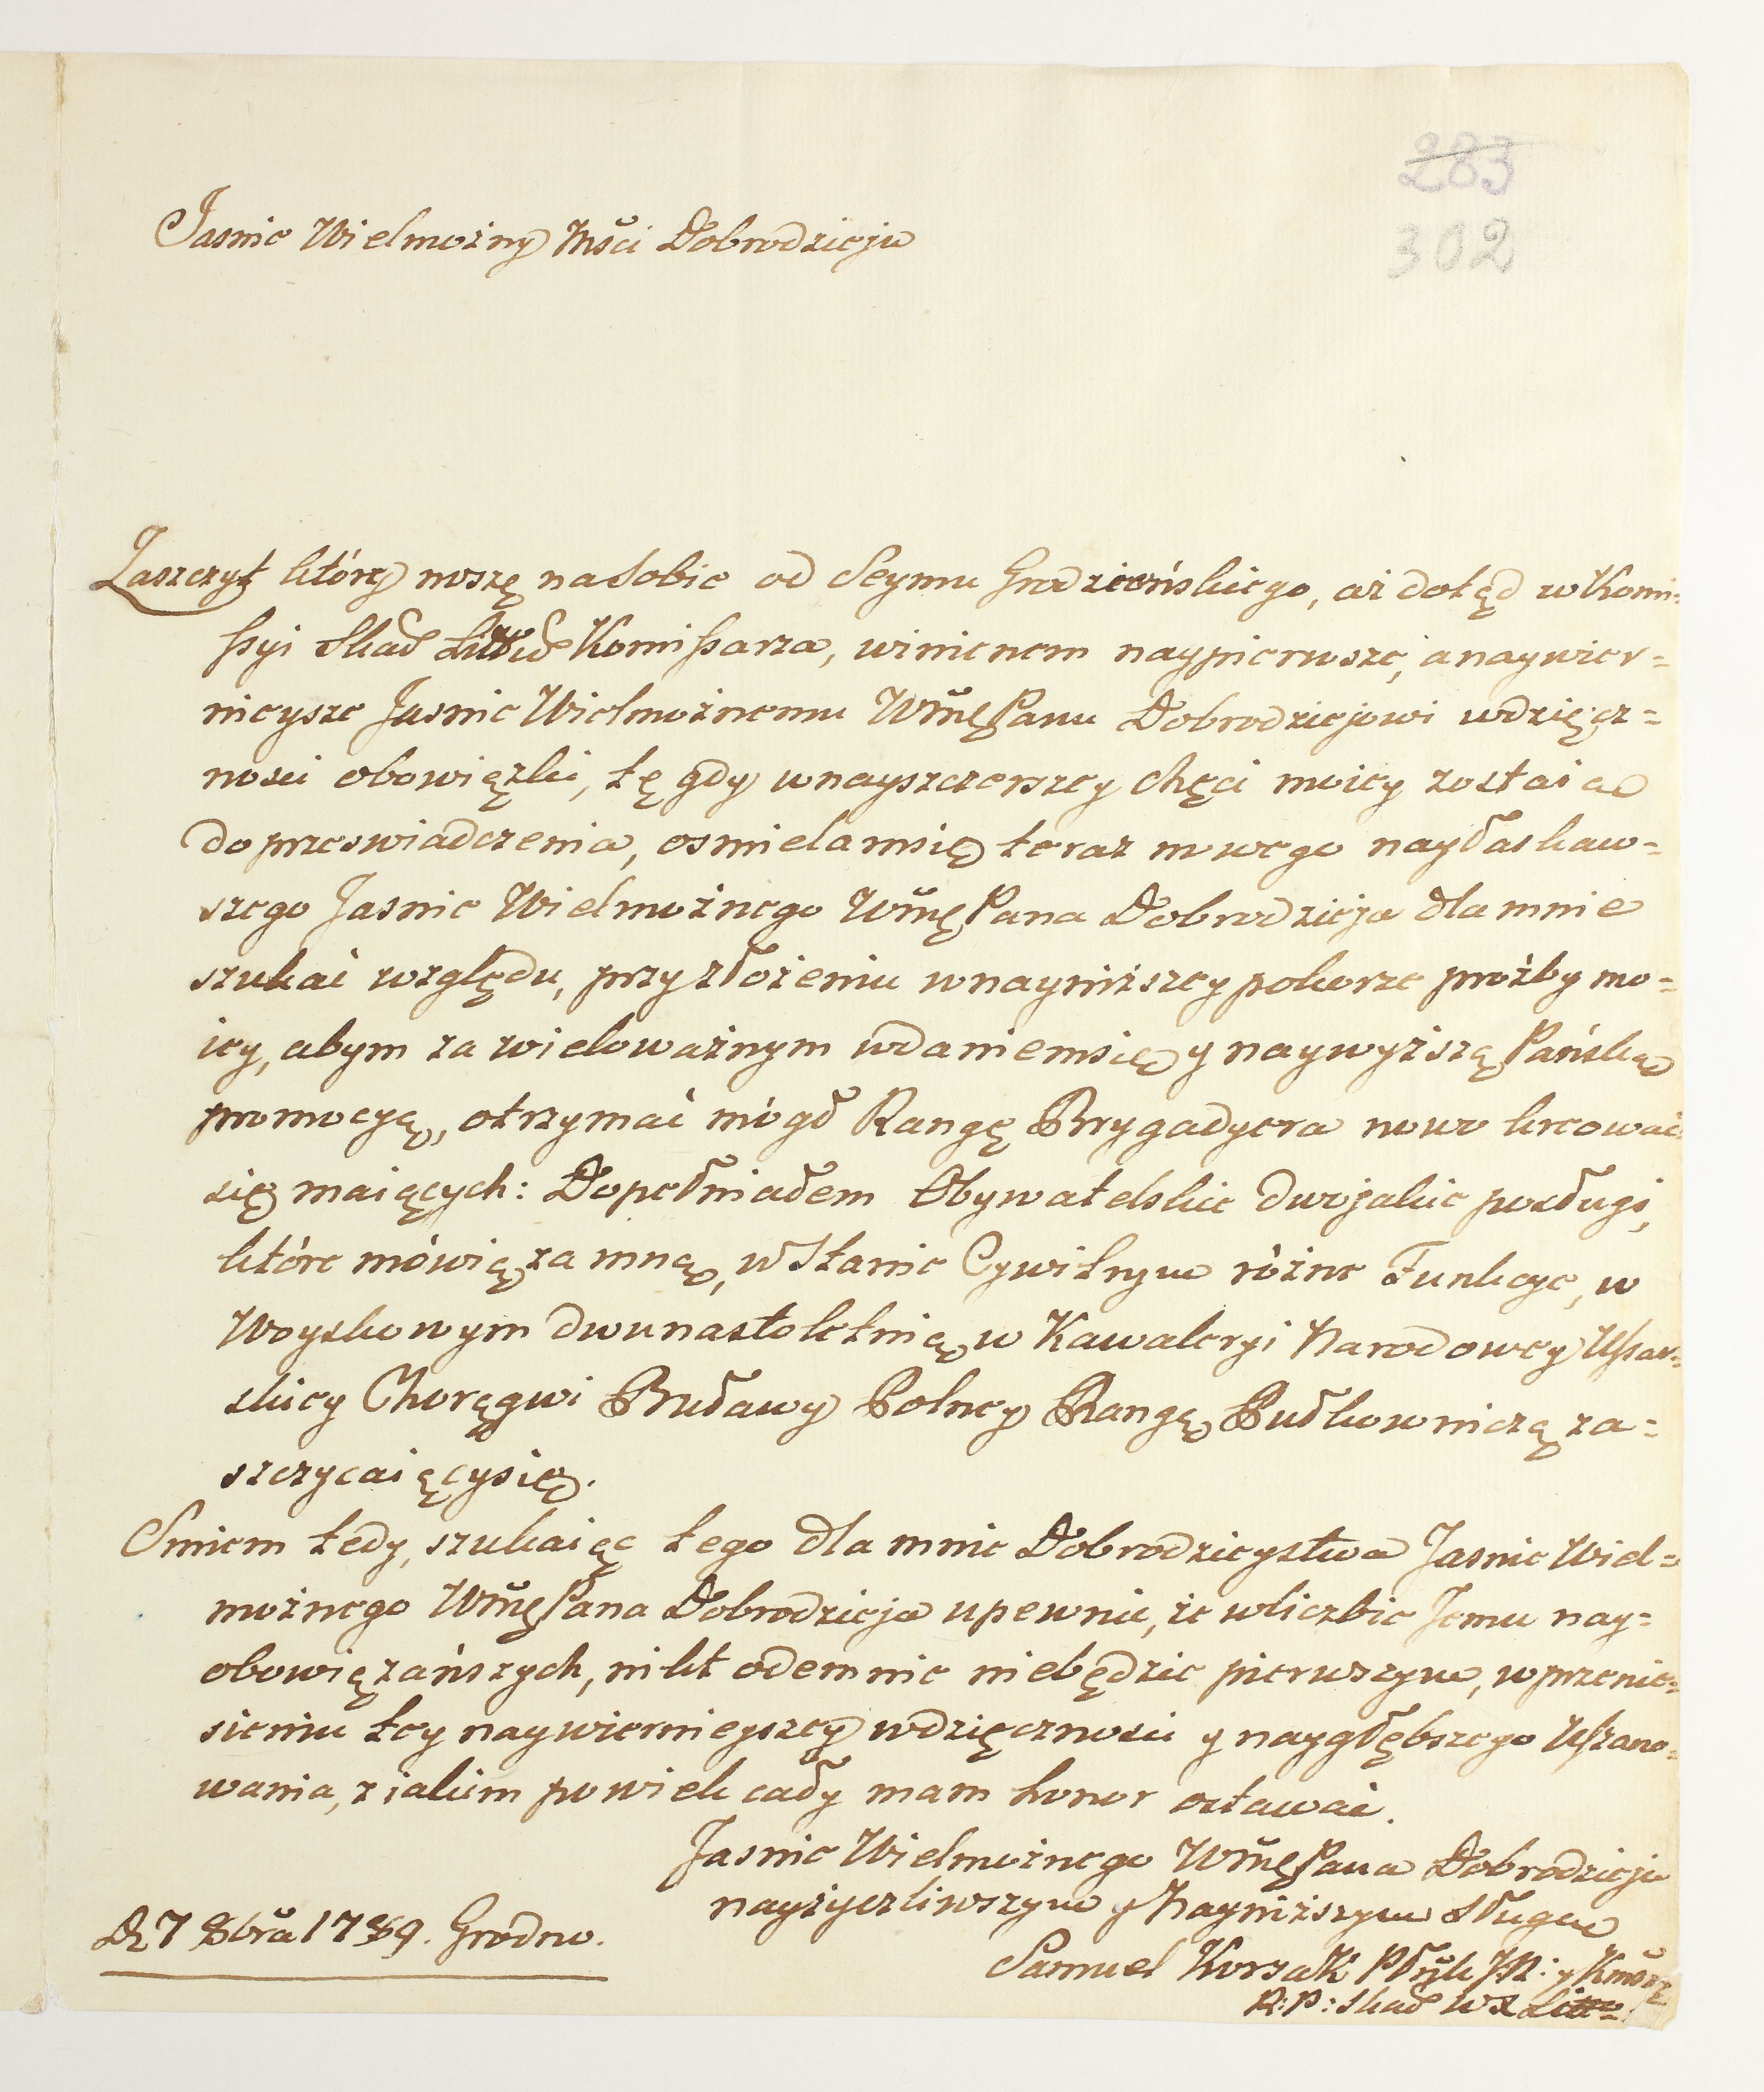 283
302
Jasnie Wielmożny Mści Dobrodzieju
Zaszczyt który noszę na sobie od Seymu Grodzieńskiego, aż dotąd w Kommi=
ssyi Skar. Litt: Kommissarza, winienem naypierwsze, a naywier=
nieysze Jasnie Wielmożnemu WMę Panu Dobrodziejowi wdzięcz=
nosci obowiązki, tę gdy w nayszczerszey chęci moiey zostaią
do przeswiadczenia, osmielam się teraz nowego nayłaskaw=
szego Jasnie Wielmożnego WMę Pana Dobrodzieja dla mnie
szukać względu, przy złożeniu w nayniższey pokorze prośby mo=
iey, abym za wieloważnym wdaniem się y naywyższą Pańską
promocyą, otrzymać mógł Rangę Brygadyera nowo kreować
się maiących: Dopełniałem Obywatelskie dwojakie posługi,
które mówią za mną, w Stanie Cywilnym różne Funkcye, w
Woyskowym dwunastoletnią w Kawaleryi Narodowey Ussar=
skiey Chorągwi Buławy Polney Rangą Pułkowniczą za=
szczycaiący się.
Smiem tedy, szukaiąc tego dla mnie Dobrodzieystwa Jasnie Wiel=
możnego WMę Pana Dobrodzieja upewnić, że w liczbie Jemu nay=
obowiązańszych, nikt odemnie niebędzie pierwszym, w przenie=
sieniu tey naywiernieyszey wdzięcznosci y naygłębszego Uszano=
wania, z iakim po wiek cały mam honor ostawać.
Jasnie Wielmożnego WMę Pana Dobrodzieja
nayżyczliwszym y Nayniższym Sługą
D. 7 8bra 1789. Grodno.
Samuel Korsak Płk JK: y Kmsrz
R: P: Skar W X Litt: